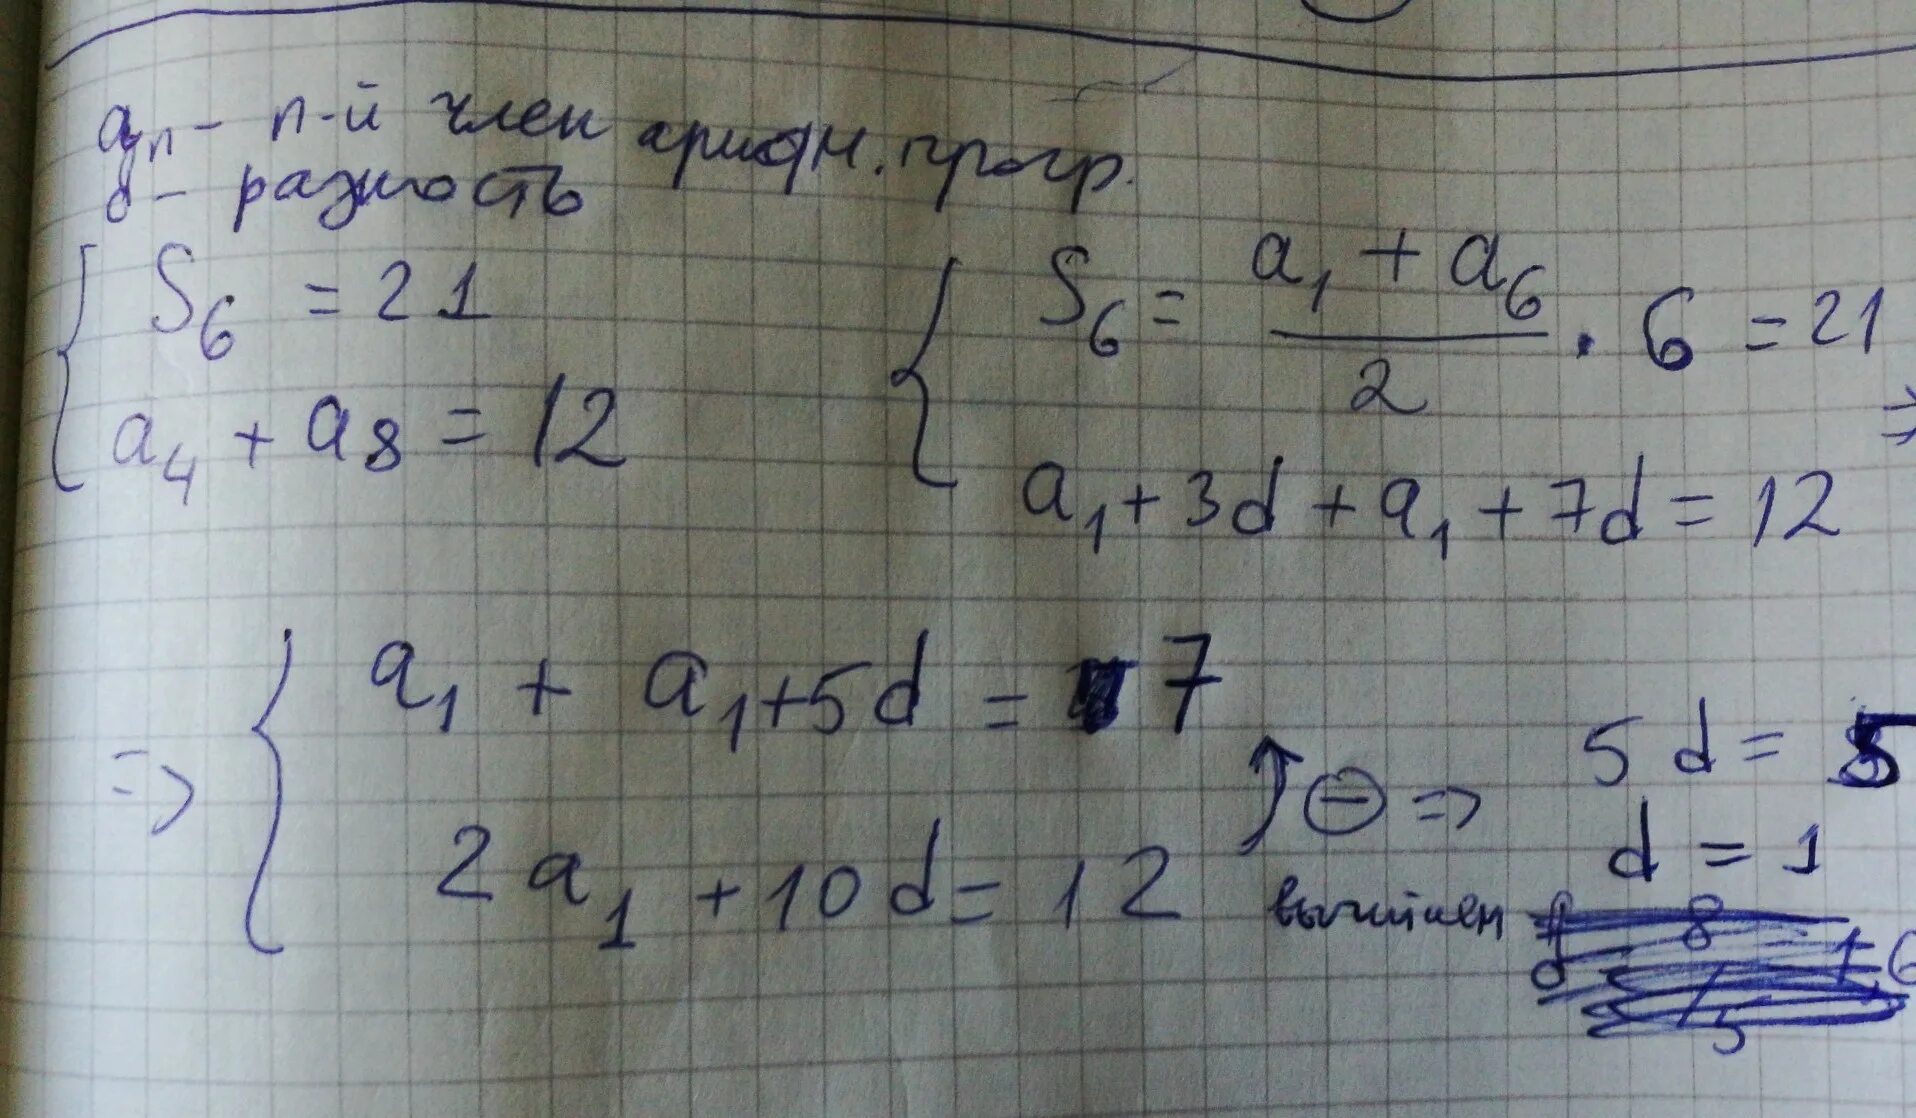 aₙ - n-й член арифм. прогр.
d - разность
S₆ = 21
a₄ + a₈ = 12
S₆ = (a₁ + a₆)/2 · 6 = 21
a₁ + 3d + a₁ + 7d = 12
⇒
⇒
a₁ + a₁ + 5d = 7
2a₁ + 10d = 12
⊖ ⇒
вычитаем
5d = 5
d = 1